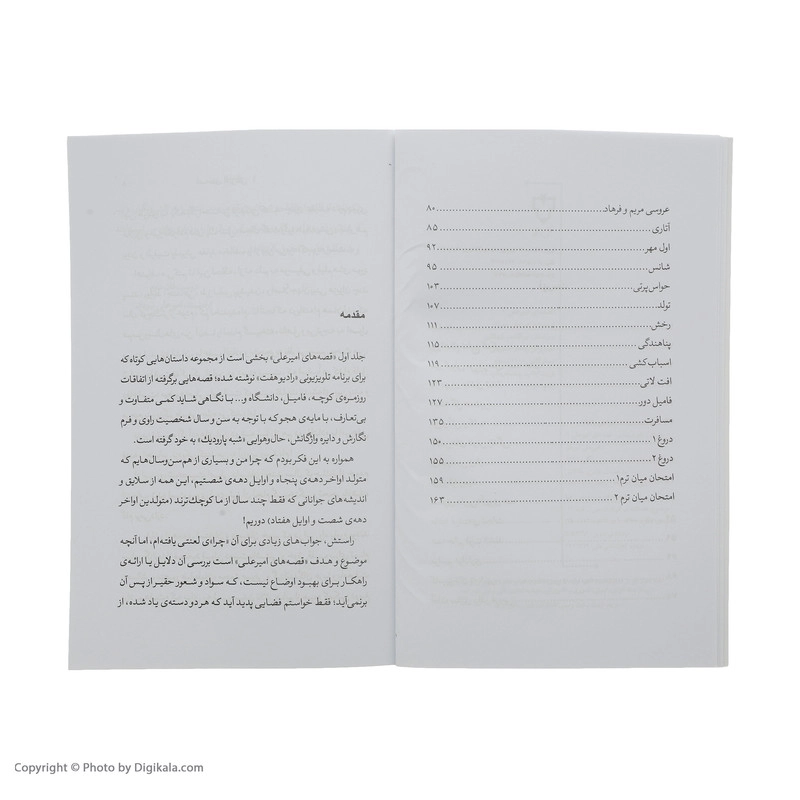 عروسی مریم و فرهاد..........۸۰
آتاری..........۸۵
اول مهر..........۹۲
شانس..........۹۵
حواس‌پرتی..........۱۰۳
تولد..........۱۰۷
رخش..........۱۱۱
پناهندگی..........۱۱۵
اسباب‌کشی..........۱۱۹
افت لاتی..........۱۲۳
فامیل دور..........۱۲۷
مسافرت..........۱۳۵
دروغ ۱..........۱۵۰
دروغ ۲..........۱۵۵
امتحان میان ترم ۱..........۱۵۹
امتحان میان ترم ۲..........۱۶۳
مقدمه
جلد اول «قصه‌های امیرعلی» بخشی است از مجموعه داستان‌هایی کوتاه که
برای برنامه تلویزیونی «رادیو هفت» نوشته شده؛ قصه‌هایی برگرفته از اتفاقات
روزمره‌ی کوچه، فامیل، دانشگاه و... با نگاهی شاید کمی متفاوت و
بی‌تعارف، با مایه‌ی هجو که با توجه به سن و سال شخصیت راوی و فرم
نگارش و دایره واژگانش، حال‌وهوایی «شبه پارودیک» به خود گرفته است.
همواره به این فکر بودم که چرا من و بسیاری از هم‌سن‌وسال‌هایم که
متولد اواخر دهه‌ی پنجاه و اوایل دهه‌ی شصتیم، این همه از سلایق و
اندیشه‌های جوانانی که فقط چند سال از ما کوچک‌ترند (متولدین اواخر
دهه‌ی شصت و اوایل هفتاد) دوریم!
راستش، جواب‌های زیادی برای آن «چرا»ی لعنتی یافته‌ام، اما آنچه
موضوع و هدف «قصه‌های امیرعلی» است بررسی آن دلایل یا ارائه‌ی
راهکار برای بهبود اوضاع نیست، که سواد و شعور حقیر از پس آن
برنمی‌آید؛ فقط خواستم فضایی پدید آید که هر دو دسته‌ی یاد شده، از
Copyright © Photo by Digikala.com